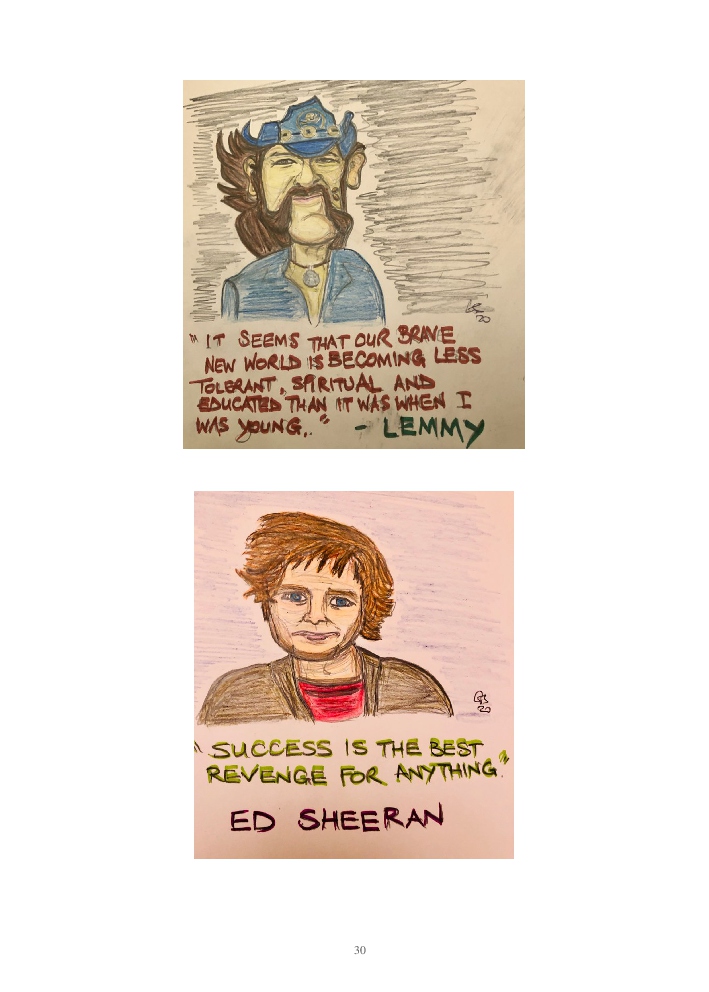 20
" IT SEEMS THAT OUR BRAVE
NEW WORLD IS BECOMING LESS
TOLERANT, SPIRITUAL AND
EDUCATED THAN IT WAS WHEN I
WAS YOUNG.."
- LEMMY
20
" SUCCESS IS THE BEST
REVENGE FOR ANYTHING."
ED SHEERAN
30